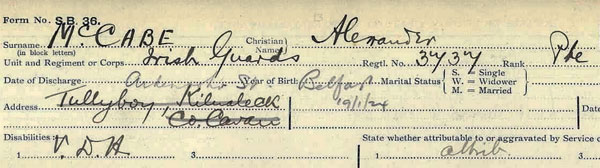 Form No. S.B. 36.
Surname McCABE Christian Name Alexander
(in block letters)
Unit and Regiment or Corps. Irish Guards Regtl. No. 3737 Rank Pte
Date of Discharge St Year of Birth Belfast Marital Status S. = Single W. = Widower M. = Married
19/1/24
Address Tullyboy, Kilnaleck
Co. Cavan
Disabilities: State whether attributable to or aggravated by Service o
1. V. D. H 3. 1. attrib 3.